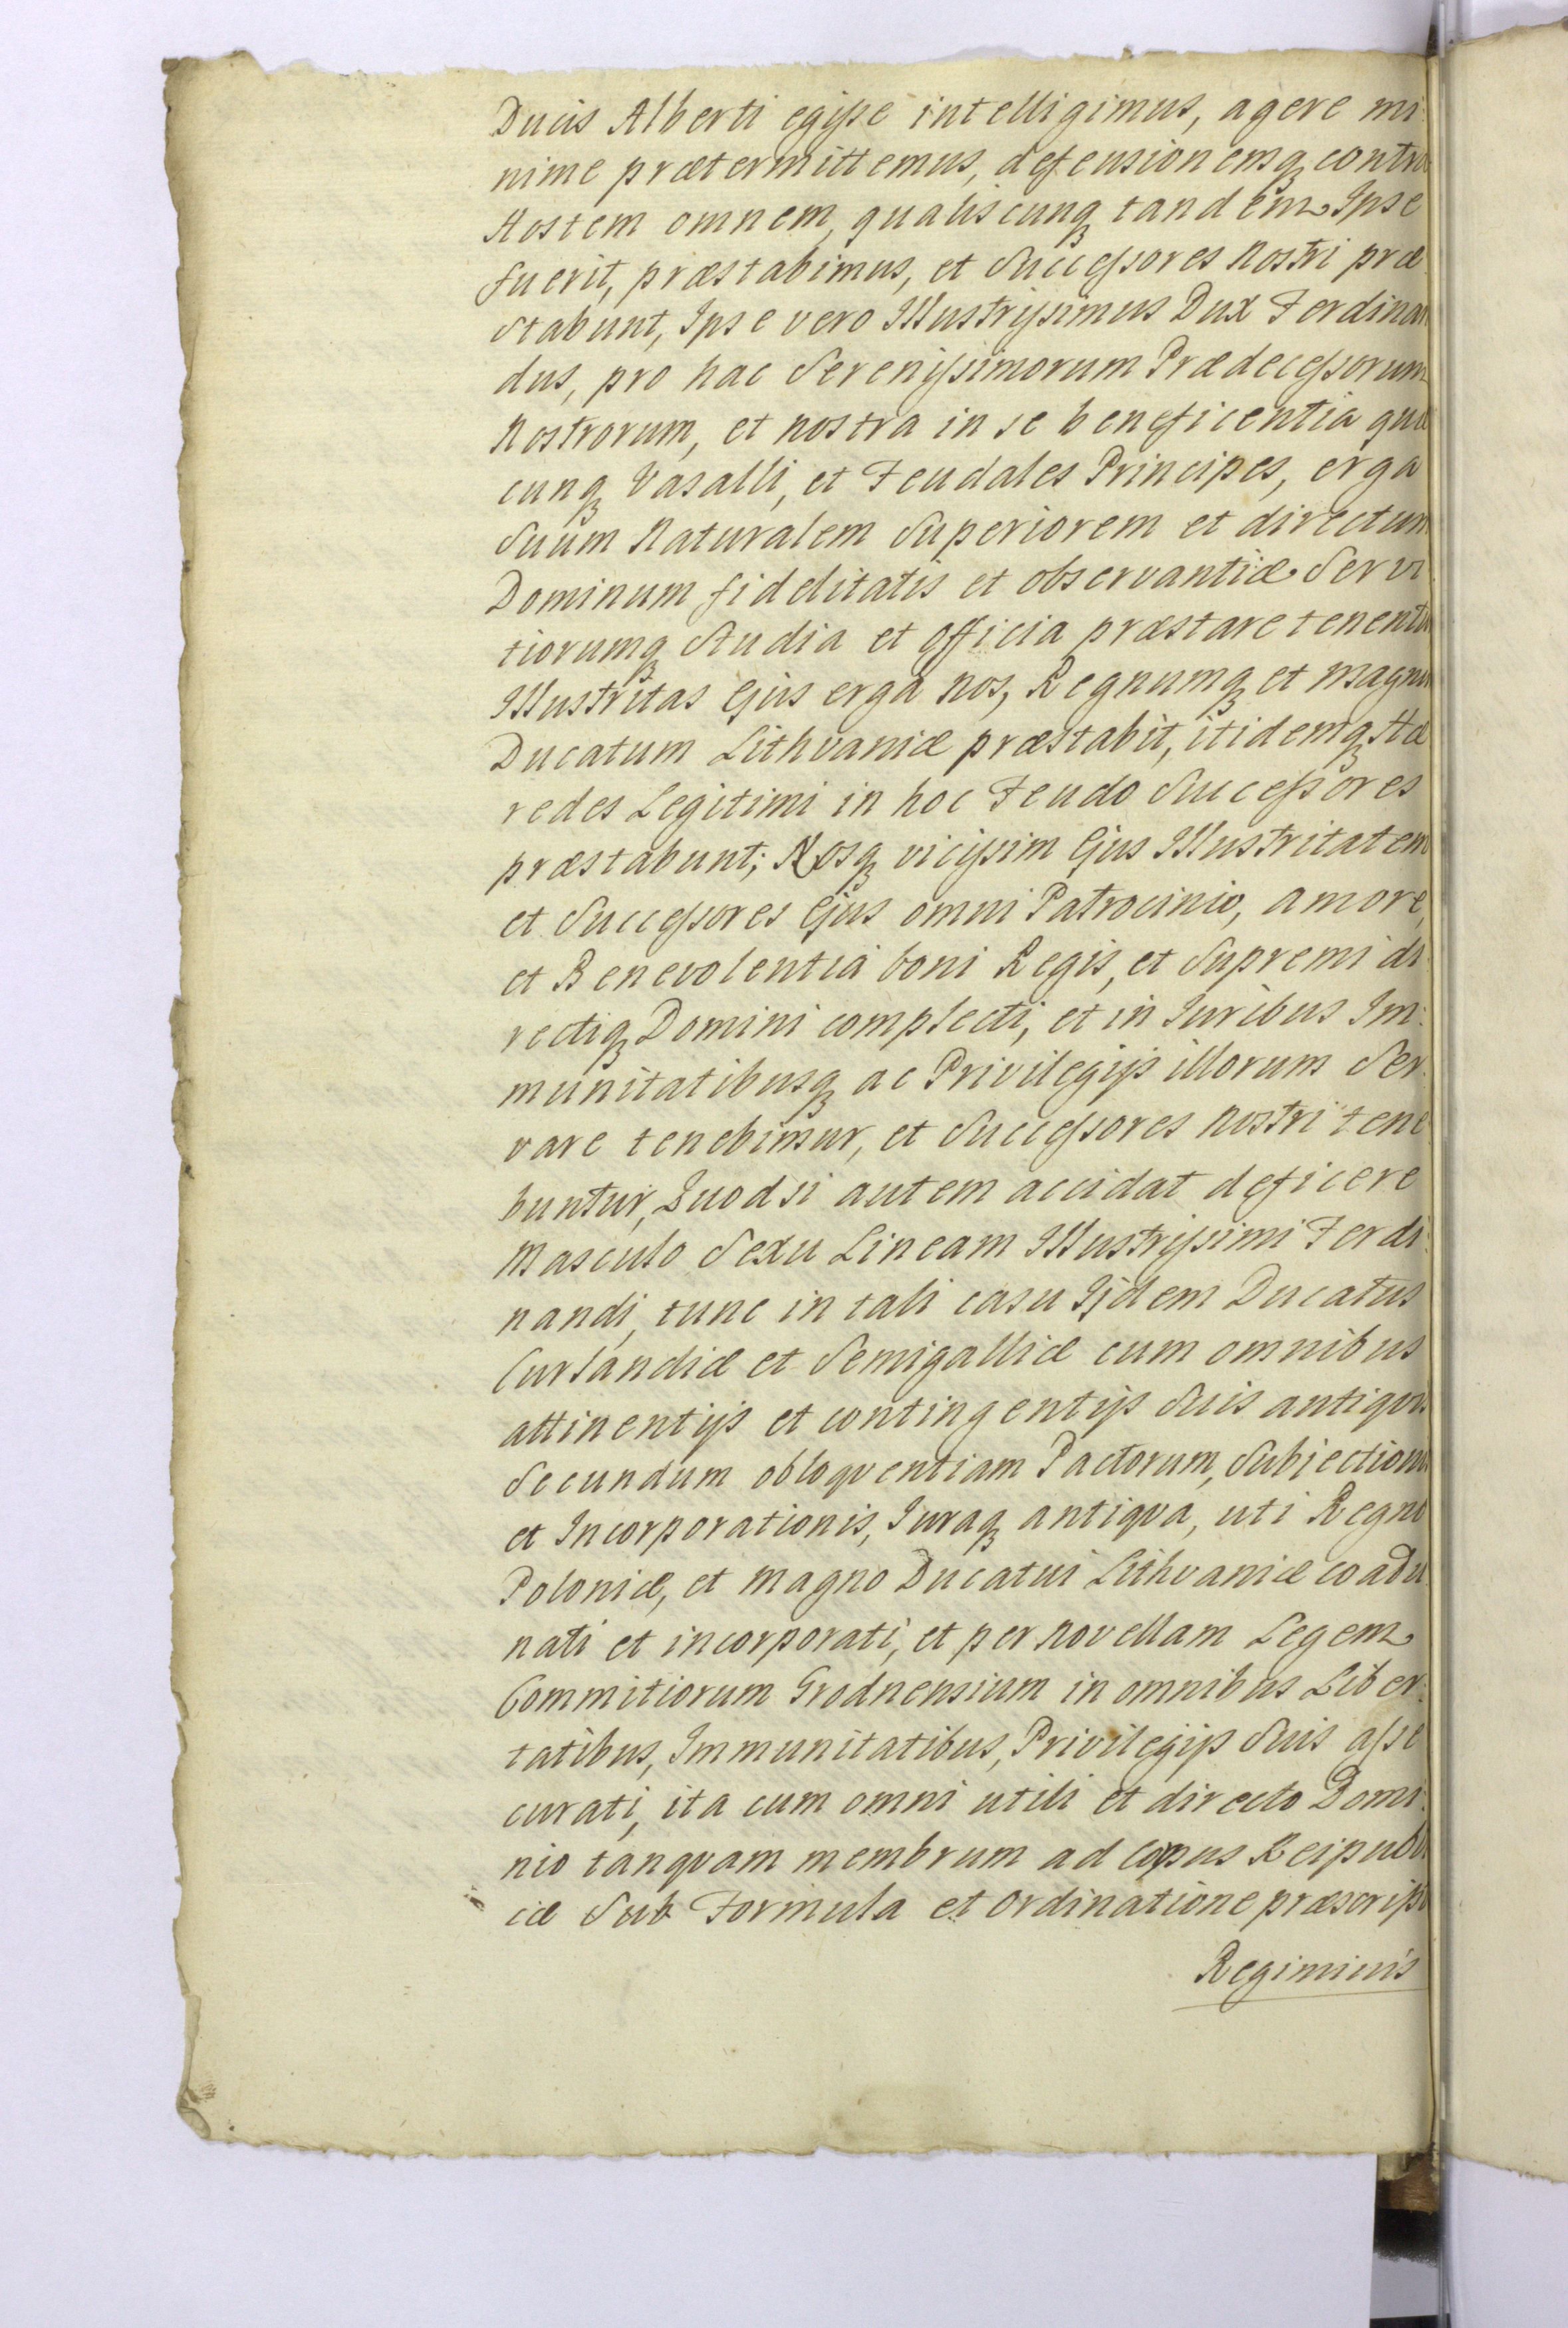 Ducis Alberti egisse intelligimus, agere mi:
nime prætermittemus, defensionemq contra
Hostem omnem, qualiscunq tandem Ipse
fuerit, præstabimus, et Successores nostri præ
stabunt, Ipse vero Illustrissimus Dux Ferdinan
dus, pro hac Serenissimorum Prædecessorum
Nostrorum, et nostra in se beneficentia quæ
cunq Vasalli, et Feudales Principes, erga
Suum Naturalem Superiorem et directum
Dominum fidelitatis et observantiæ Servi
tiorumq Studia et officia præstare tenentur
Illustritas Ejus erga nos, Regnumq et magnum
Ducatum Lithvaniæ præstabit, itidemq Hæ
redes Legitimi in hoc Feudo Successores
præstabunt; Nosq vicissim Ejus Illustritatem
et Successores Ejus omni Patrocinio, amore,
et Benevolentia boni Regis, et Supremi di:
rectiq Domini complecti, et in Juribus Im:
munitatibusq ac Privilegijs illorum Ser:
vare tenebimur, et Successores nostri tene
buntur, Quodsi autem accidat deficere
Masculo Sexu Lineam Illustrissimi Ferdi:
nandi, tunc in tali casu Ijdem Ducatus
Curlandiæ et Semigalliæ cum omnibus
attinentijs et contingentijs Suis antiqvis
Secundum obloqventiam Pactorum, Subjectionis
et Incorporationis, Juraq antiqva, uti Regno
Poloniæ, et Magno Ducatui Lithvaniæ coadu
nati et incorporati, et per novellam Legem
Commitiorum Grodnensium in omnibus Liber:
tatibus, Immunitatibus, Privilegijs Suis asse
curati, ita cum omni utili et directo Domi:
nio tanqvam membrum ad Copus Reipubli
cæ Sub Formula et ordinatione præscripti
Regiminis